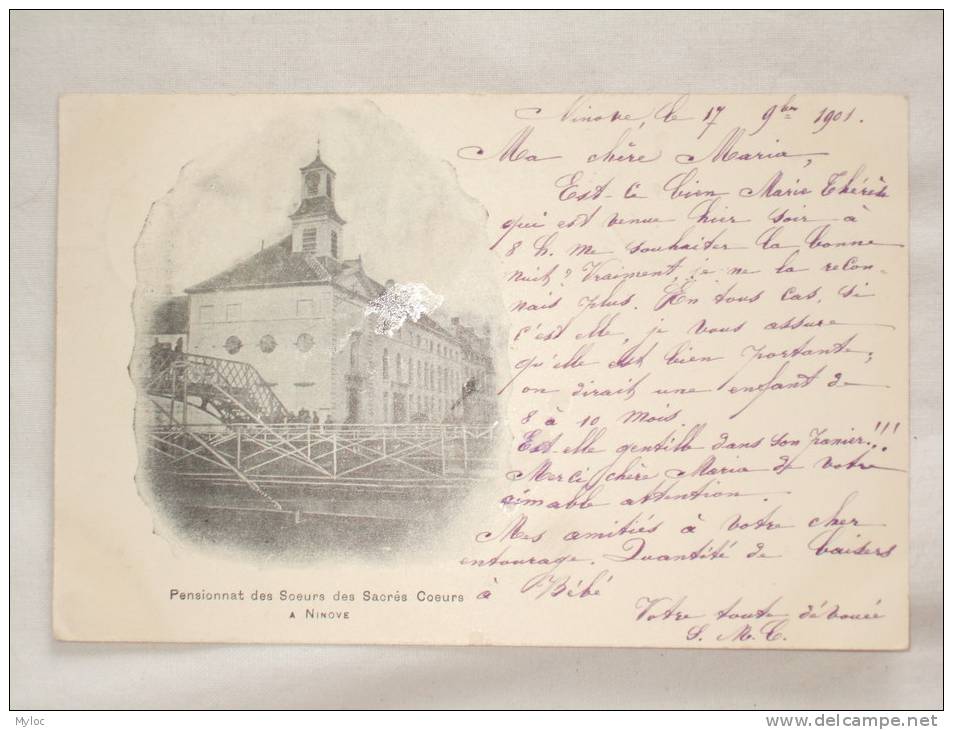 Ninove, le 17 9bre 1901.
Ma chère Maria,
Est-ce bien Marie Thérèse
qui est venue hier soir à
8 h. me souhaiter la bonne
nuit? Vraiment, je ne la recon-
nais plus. En tous cas, si
c'est elle, je vous assure
qu'elle est bien portante;
on dirait une enfant de
8 à 10 mois
Est-elle gentille dans son panier!!!
Merci chère Maria de votre
aimable attention.
Mes amitiés à votre cher
entourage. Quantité de baisers
à Bébé
Votre toute dévouée
S. M. C.
Pensionnat des Soeurs des Sacrés Coeurs
A NINOVE
Myloc
www.delcampe.net